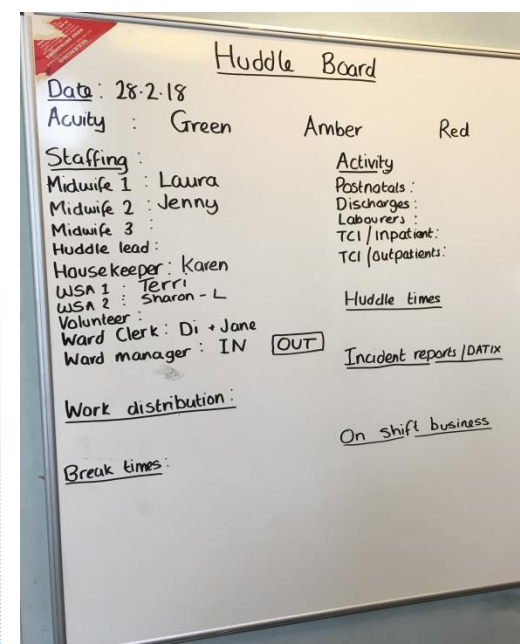 Huddle Board
Date: 28.2.18
Acuity : Green Amber Red
Staffing :
Midwife 1 : Laura
Midwife 2 : Jenny
Midwife 3 :
Huddle lead :
Housekeeper : Karen
WSA 1 : Terri
WSA 2 : Sharon - L
Volunteer :
Ward Clerk : Di + Jane
Ward manager : IN OUT
Work distribution :
Break times :
Activity
Postnatals :
Discharges :
Labourers :
TCI / Inpatient :
TCI / outpatients :
Huddle times
Incident reports / DATIX
On shift business